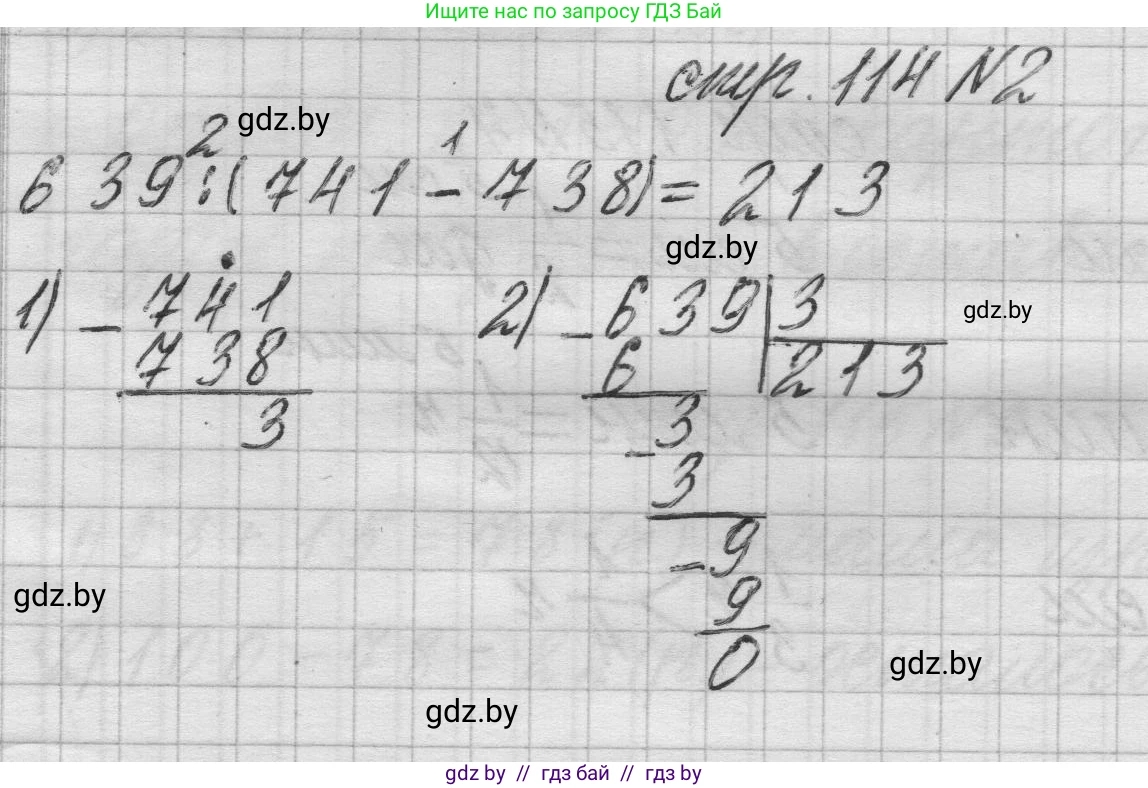 Ищите нас по запросу ГДЗ Бай
стр. 114 №2
gdz.by
2 1
639:(741-738)=213
gdz.by
1) -741 2) -639|3
gdz.by
738 6 213
3 -3
3
-9
gdz.by
9
0
gdz.by
gdz.by
gdz by // гдз бай // гдз by